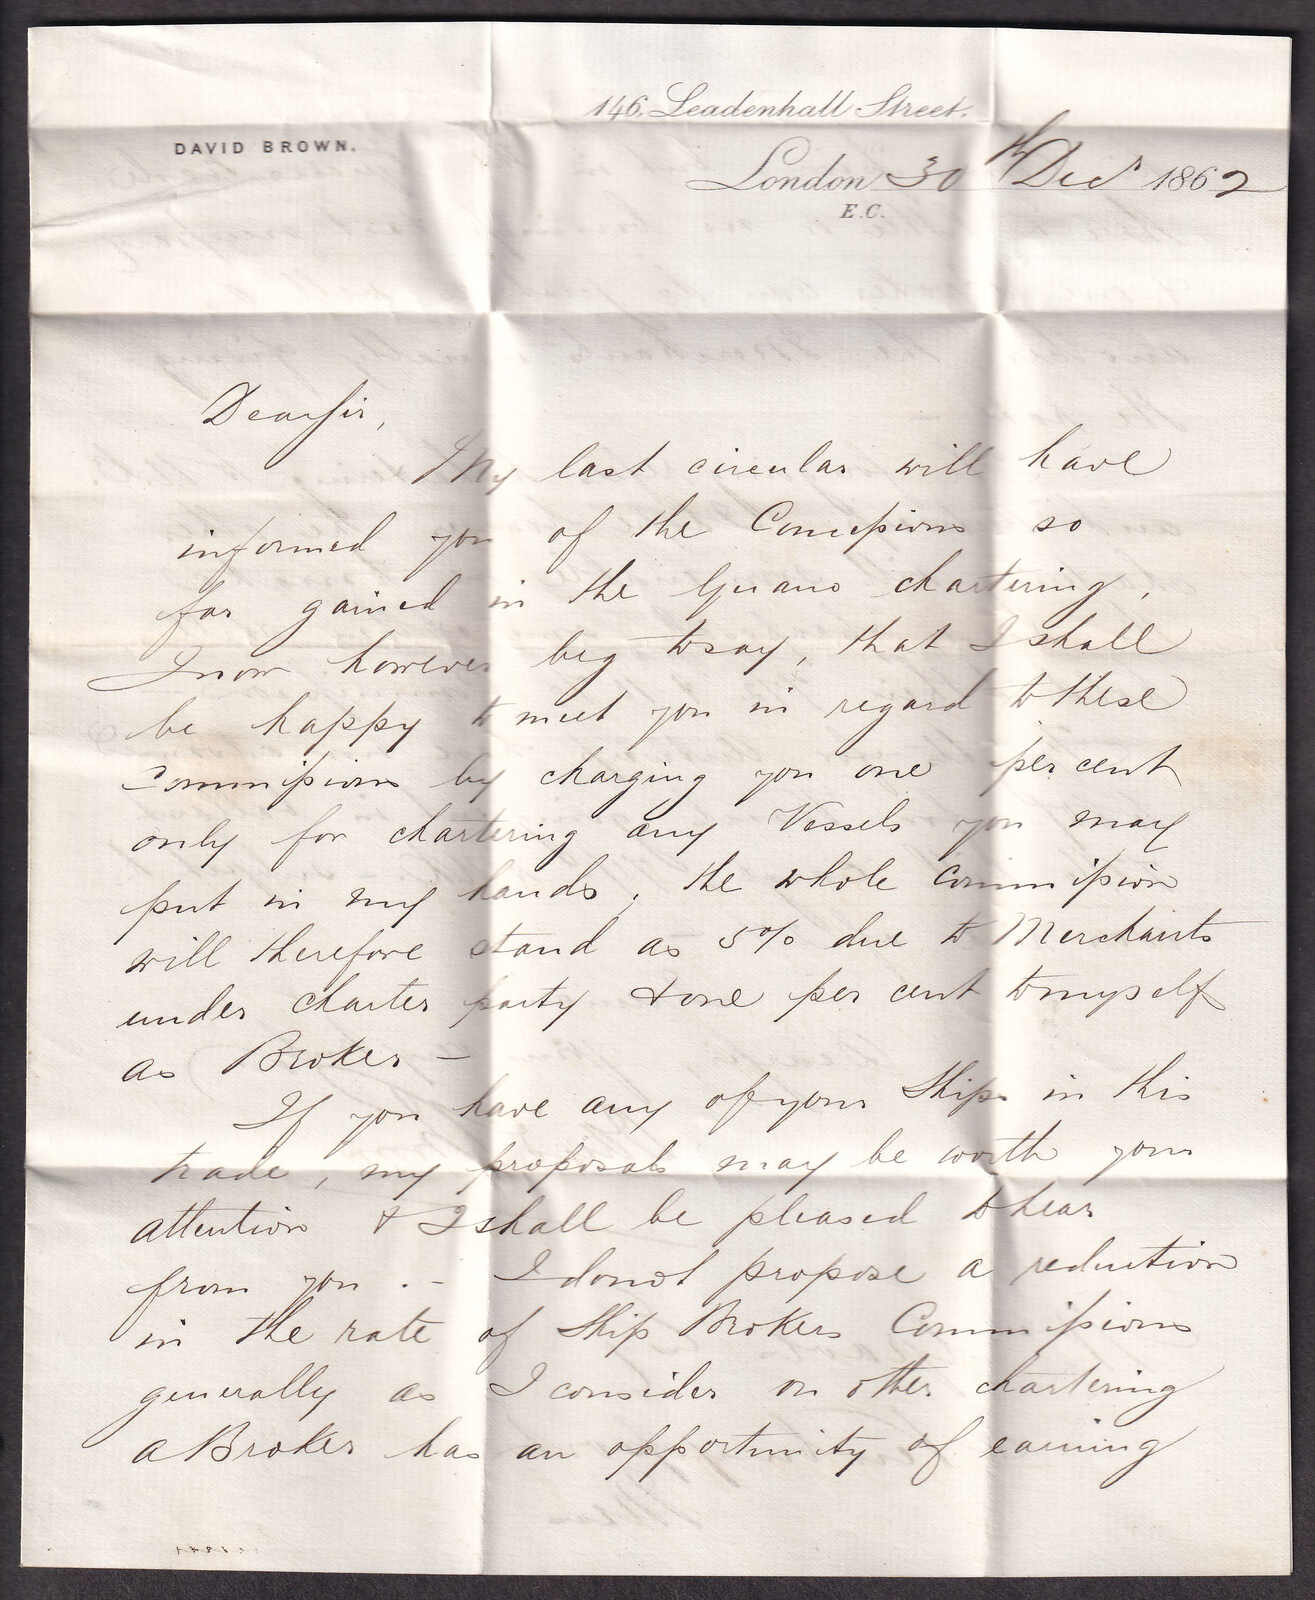 146, Leadenhall Street.
DAVID BROWN.
London 30th Decr 1862
E.C.
Dear Sir,
My last circular will have
informed you of the Concessions so
far gained in the Guano chartering,
I now however beg to say, that I shall
be happy to meet you in regard to these
Commissions by charging you one per cent
only for chartering any Vessels you may
put in my hands, the whole Commission
will therefore stand as 5% due to Merchants
under charter party & one per cent to myself
as Broker —
If you have any of your Ships in this
trade, my proposals may be worth your
attention & I shall be pleased to hear
from you. — I do not propose a reduction
in the rate of Ship Brokers Commissions
generally as I consider on other chartering
a Broker has an opportunity of earning